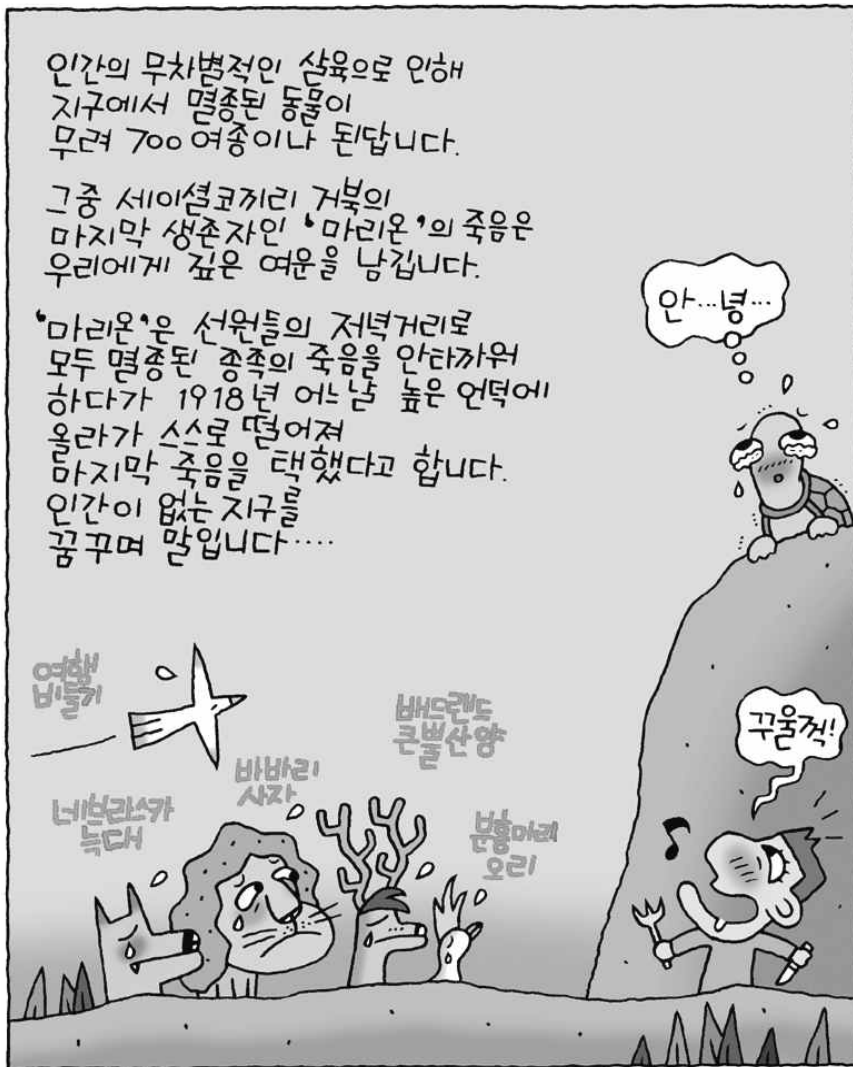 인간의 무차별적인 살육으로 인해
지구에서 멸종된 동물이
무려 700여종이나 된답니다.
그중 세이셜코끼리 거북의
마지막 생존자인 '마리온'의 죽음은
우리에게 짚은 여운을 남깁니다.
'마리온'은 선원들의 저녁거리로
모두 멸종된 종족의 죽음을 안타까워
하다가 1918년 어느날 높은 언덕에
올라가 스스로 떨어져
마지막 죽음을 택했다고 합니다.
인간이 없는 지구를
꿈꾸며 말입니다.....
안...녕...
여행
비둘기
배드랜드
큰뿔산양
꾸울꺽!
바바리
사자
네브라스카
늑대
분홍머리
오리